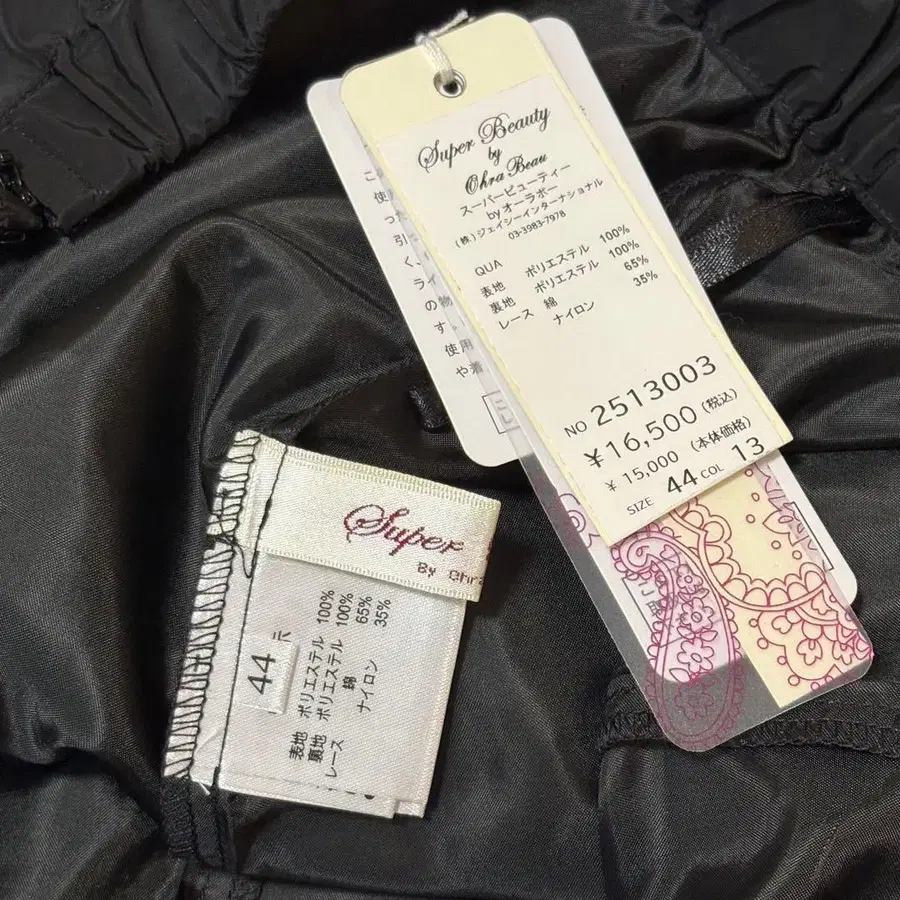 Super Beauty
by
Ohra Beau
スーパービューティー
by オーラボー
(株)ジェイシーインターナショナル
03-3983-7978
QUA
表地 ポリエステル 100%
裏地 ポリエステル 100%
レース 綿 65%
ナイロン 35%
NO 2513003
¥16,500 (税込)
¥ 15,000 (本体価格)
SIZE 44 COL 13
使用
った
引
く、
ライ
の 物
す。
使用
や着
Super
By Ohra
44
表地 ポリエステル 100%
裏地 ポリエステル 100%
レース 綿 65%
ナイロン 35%